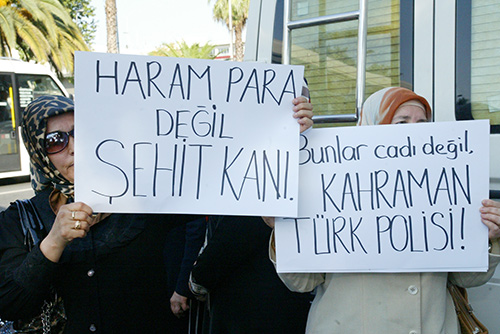 HARAM PARA
DEĞİL
ŞEHİT KANI.
Bunlar cadı değil,
KAHRAMAN
TÜRK POLİSİ!